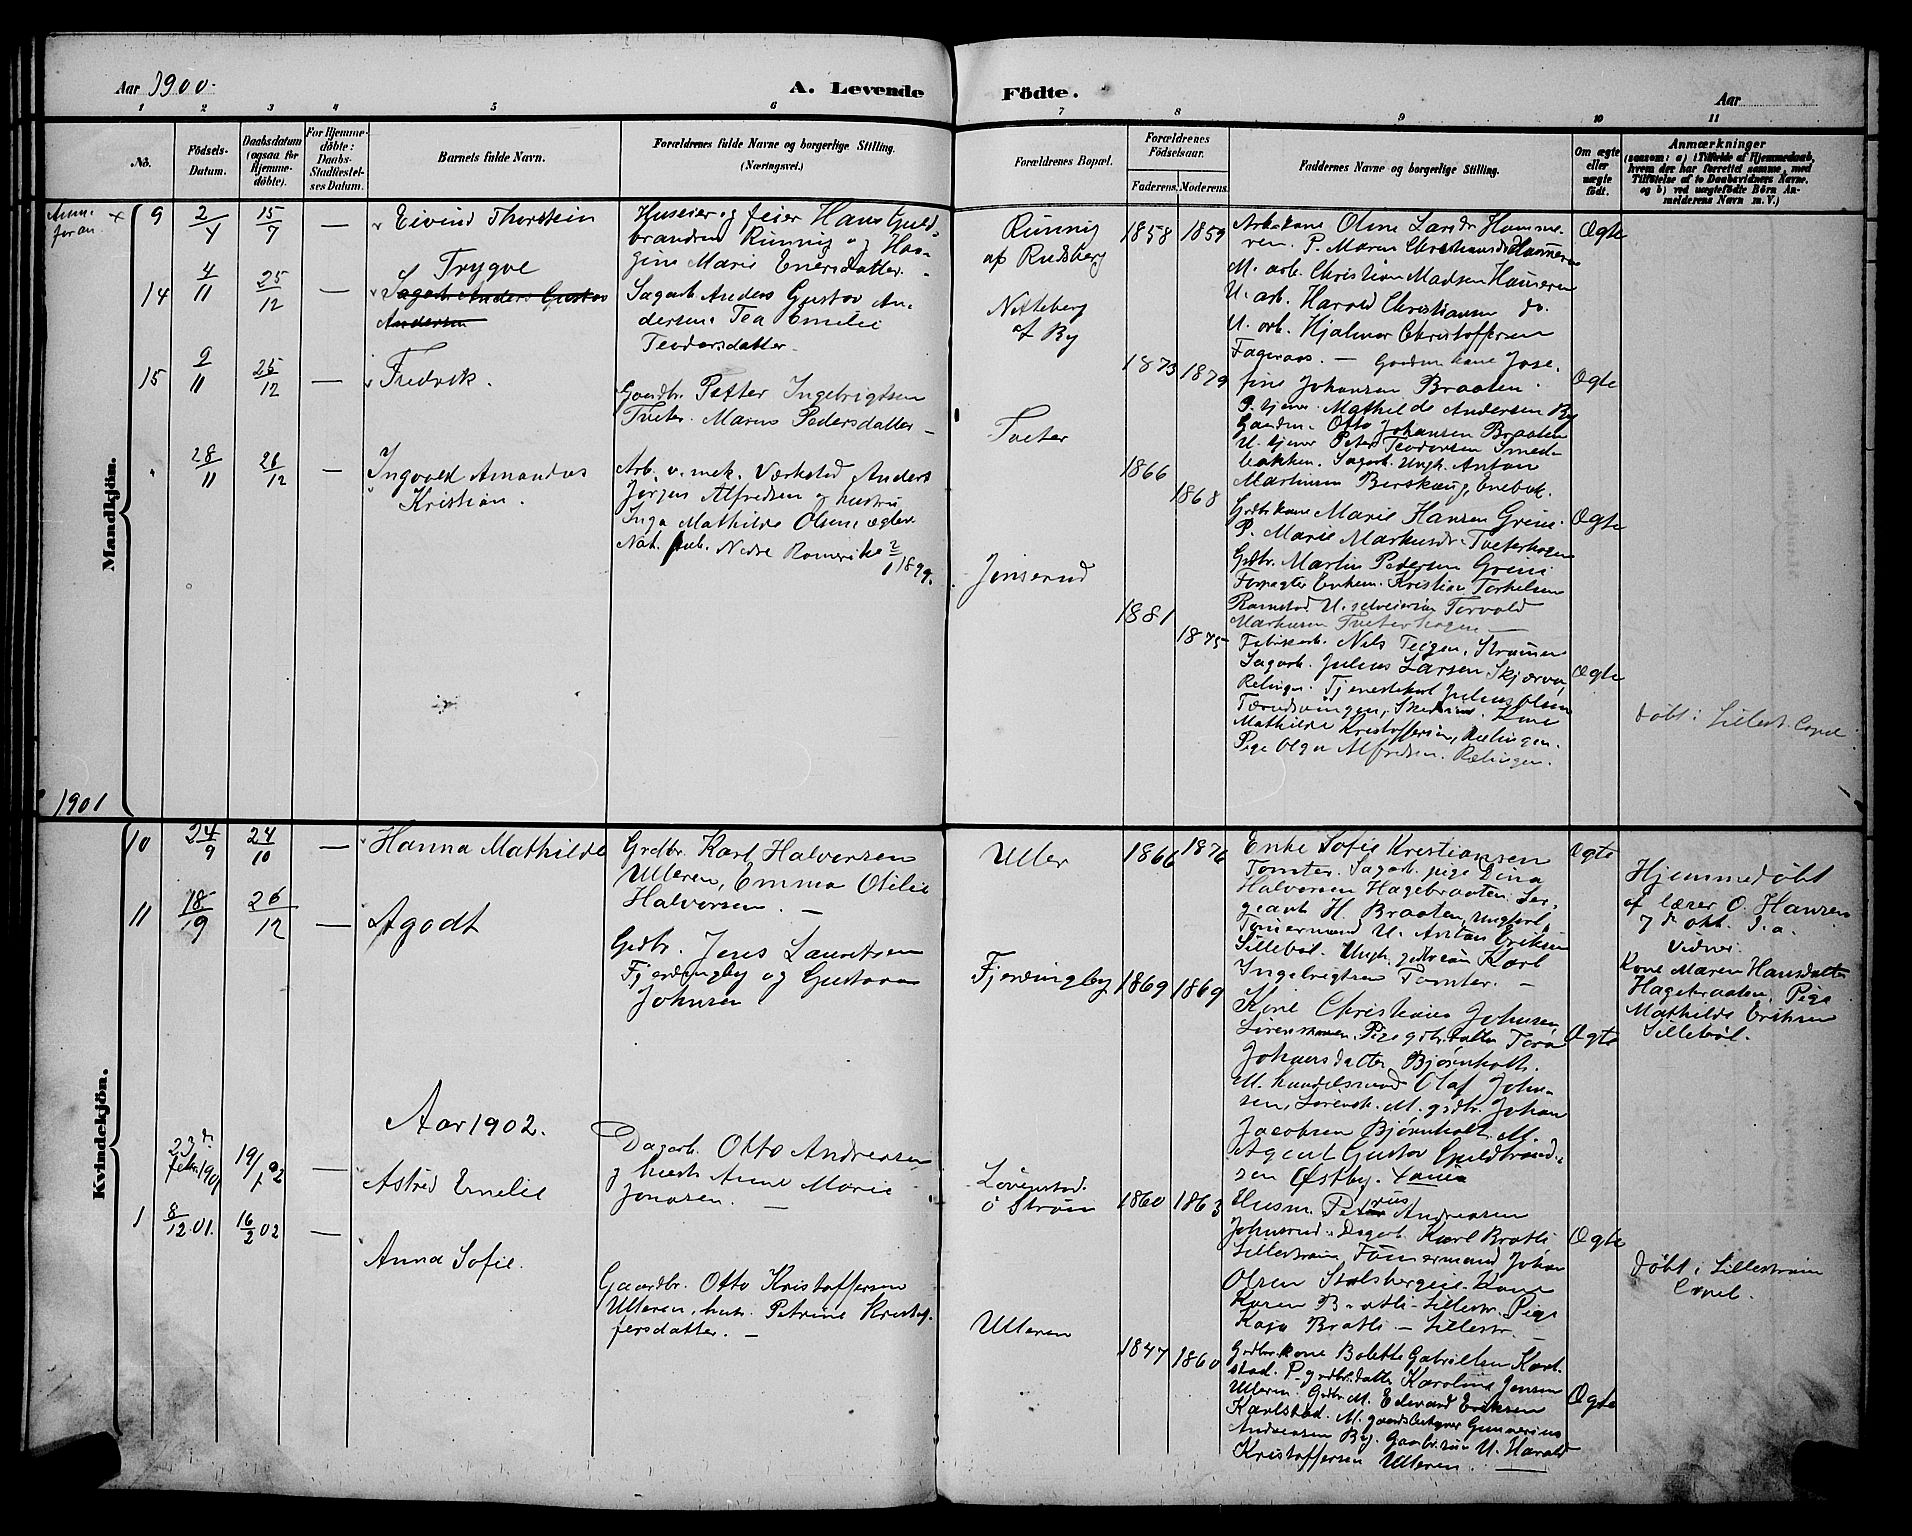 Aar 1900.
A. Levende Födte.
Aar
1 2 3 4 5 6 7 8 9 10 11
No.
Födsels-Datum.
Daabsdatum (ogsaa for Hjemme-döbte).
For Hjemme-döbte: Daabs-Stadfæstel-ses Datum.
Barnets fulde Navn.
Forældrenes fulde Navne og borgerlige Stilling. (Næringsvei.)
Forældrenes Bopæl.
Forældrenes Födselsaar.
Faderens. Moderens.
Faddernes Navne og borgerlige Stilling.
Om ægte eller uægte födt.
Anmærkninger
(saasom: a) i Tilfælde af Hjemmedaab,
hvem der har forrettet samme, med
Tilföielse af to Daabsvidners Navne,
og b) ved uægtefödte Börn An-
melderens Navn m. V.)
Mandkjön.
Anm. foran × 9 2/4 15/7 — Eivind Thorstein
Huseier og feier Hans Guld-
brandsen Runnig og Hav-
gine Marie Enersdatter.
Runnig
af Rudsberg
1858 1859
Arb.kone Oline Larsdr Hamme-
ren. P. Maren Christiansdr Hammeren
M. arb. Christian Madsen Hameren
U. arb. Harald Christiansen do.
U. arb. Hjalmar Christoffersen
Fageraas. —
Ægte
14 4/11 25/12 — Trygve
Sagarb. Anders Gustav
Andersen
Sagarb. Anders Gustav An-
dersen. Tea Emelie
Teodorsdatter.
Nitteberg
af By
1873 1879
Gaardm. kone Jose-
fine Johansen Braaten.
P. tjener Mathilde Andersen By
Gaardm. Otto Johansen Braaten
U. tjener Peter Teodorsen Smed-
bakken. Sagarb. Ungk. Anton
Martinsen Berskaug, Enebak.
Ægte
15 9/11 25/12 — Fredrik.
Gaardbr. Petter Ingebrigtsen
Tveter. Maren Pedersdatter —
Tveter
1866 1868
Grdbr.kone Marie Hansen Greni.
P. Marie Markusdr. Tveterhagen
Grdbr. Martin Pedersen Greni
Forpagter Enkem. Kristian Torkelsen
Ramstad U. selveiersøn Torvald
Markusen Tveterhagen —
Ægte
" 28/11 26/12 — Ingvald Amandus
Kristian.
Arb. v. mek. Værksted Anders
Jørgen Alfredsen og hustru
Inga Mathilde Olsen ægtev.
Not. pub. Nedre Romerike 2/1 1899.
Jonsrud
1881 1875
Fabrikarb. Nils Teigen, Strømmen
Sagarb. Julius Larsen Skjærva
Relingen. Tjenestekarl Julius Olsen
Tærudsvingen, Skedsmo. Kone
Mathilde Kristoffersen, Rælingen.
Pige Olga Alfredsen. Rælingen.
Ægte
Døbt i Lillestr. Capel
1901
Kvindekjön.
10 24/9 24/10 — Hanna Mathilde
Grdbr. Karl Halvorsen
Ulleren, Emma Otilie
Halvorsen. —
Uller
1866 1876
Enke Sofie Kristiansen
Tomter. Sagarb. pige Dina
Halvorsen Hagebraaten. Ser-
geant H. Braaten, Ungkarl
Tømmermand U. Anton Eriksen
Sillebøl. Ungk. grdbr.søn Karl
Ingebrigtsen Tomter. —
Ægte
Hjemmedøbt
af lærer O. Hansen
7de okt. s. a.
Vidner:
Kone Maren Hansdatter
Hagebraaten, Pige
Mathilde Eriksen
Sillebøl.
11 18/9 26/12 — Agodt
Grdbr. Jens Lauritsen
Fjerdingby og Gustava
Johnsen
Fjerdingby
1869 1869
Kone Christiane Johnsen,
Lørenskoven. Pige grdbr.datter Tora
Johansdatter Bjørnholt.
M. handelsmand Olaf John-
sen, Lørensk. M. grdbr. Johan
Jacobsen Bjørnholt. M.
Agent Gustav Guldbrand-
sen Østby.
Ægte
Aar 1902.
23de febr. 1901 19/1 02 — Astrid Emelie
Dagarb. Otto Andreasen
og hustr. Anne Marie
Jonasen. —
Løvenstad.
ö Strøm
1860 1863
Husm. Petrus Andreasen
Johnsrud. Dagarb. Karl Bratli
Lillestrøm. Tømmermand Johan
Olsen Stalsbergeie. Kone
Karen Bratli — Lillestr. Pige
Kaja Bratli — Lillestr. —
Ægte
Døbt i Lillestrøm
Capel.
1 8/12 01. 16/2 02 — Anna Sofie.
Gaardbr. Otto Kristoffersen
Ulleren, hustr. Petrine Kristof-
fersdatter. —
Ulleren
1847 1860
Grdbr.kone Bolette Gabrielsen Karl-
stad. P. grdbr.datter Karoline Jensen
Ulleren. Grdbr. M. Edevard Eriksen
Karlstad. M. gaardbestyrer Gunnerius
Andreasen By. Gaardbr.søn U. Harald
Kristoffersen Ulleren. —
Ægte